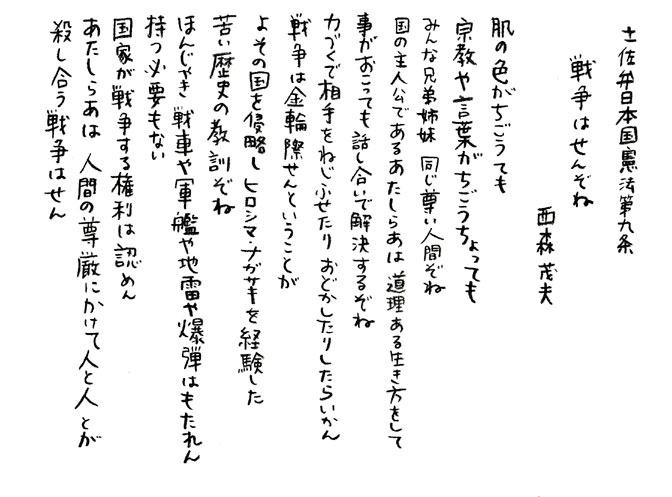 土佐弁日本国憲法第九条
戦争はせんぞね
西森茂夫
肌の色がちごうても
宗教や言葉がちごうちょっても
みんな兄弟姉妹 同じ尊い人間ぞね
国の主人公であるあたしらあは 道理ある生き方をして
事がおこっても話し合いで解決するぞね
力づくで相手をねじふせたり おどかしたりしたらいかん
戦争は金輪際せんということが
よその国を侵略し ヒロシマ・ナガサキを経験した
苦い歴史の教訓ぞね
ほんじゃき 戦車や軍艦や地雷や爆弾はもたれん
持つ必要もない
国家が戦争する権利は認めん
あたしらあは 人間の尊厳にかけて人と人とが
殺し合う戦争はせん